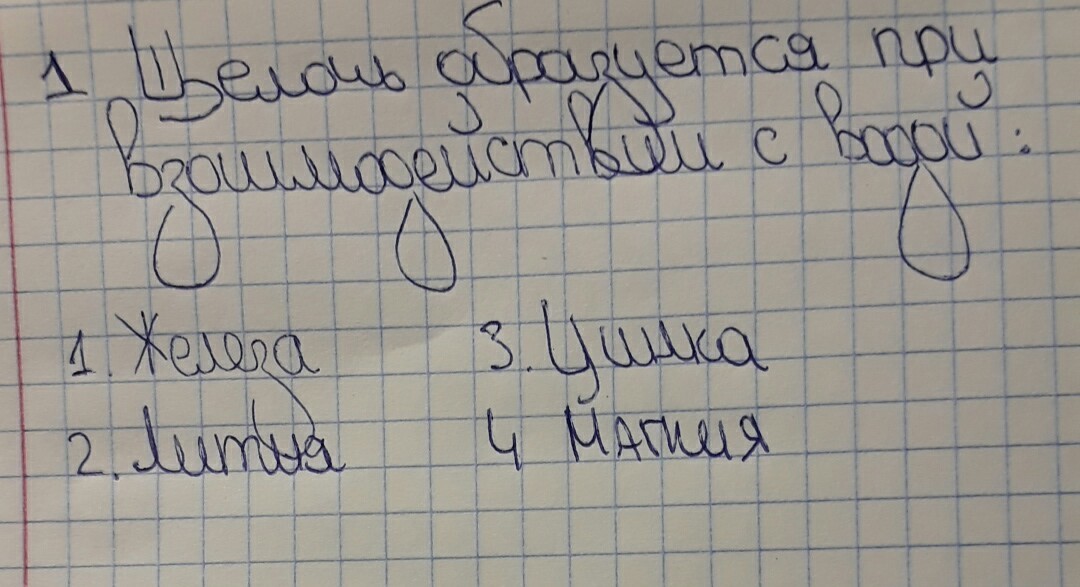 1 Щелочь образуется при
взаимодействии с водой:
1. Железа 3. Цинка
2. Лития 4 Магния